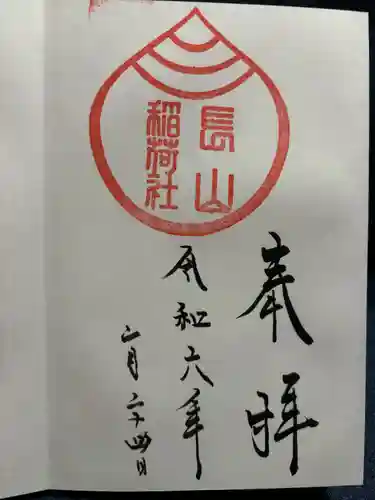 奉拝
長山
稲荷社
令和六年
六月二十四日